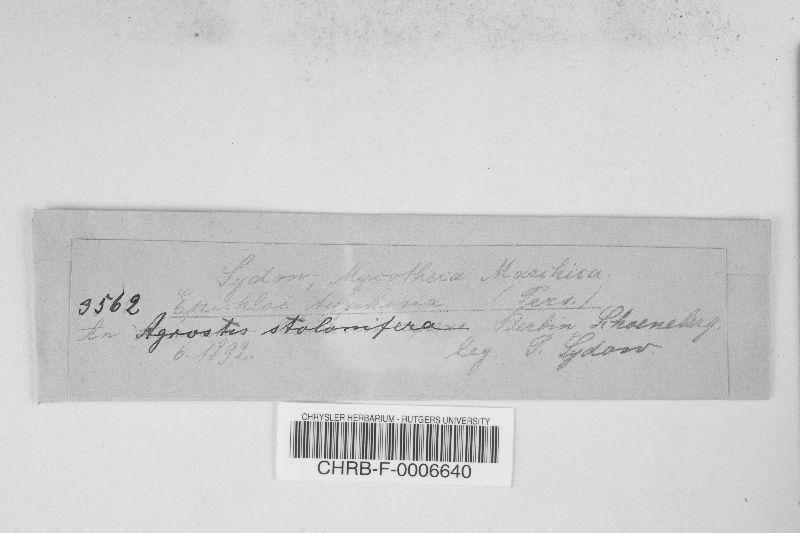 Sydow, Mycotheca Marchica.
3562 Epichloë typhina (Pers.)
An Agrostis stolonifera Berlin Schoeneberg.
6. 1892. leg. P. Sydow.
CHRYSLER HERBARIUM - RUTGERS UNIVERSITY
CHRB-F-0006640